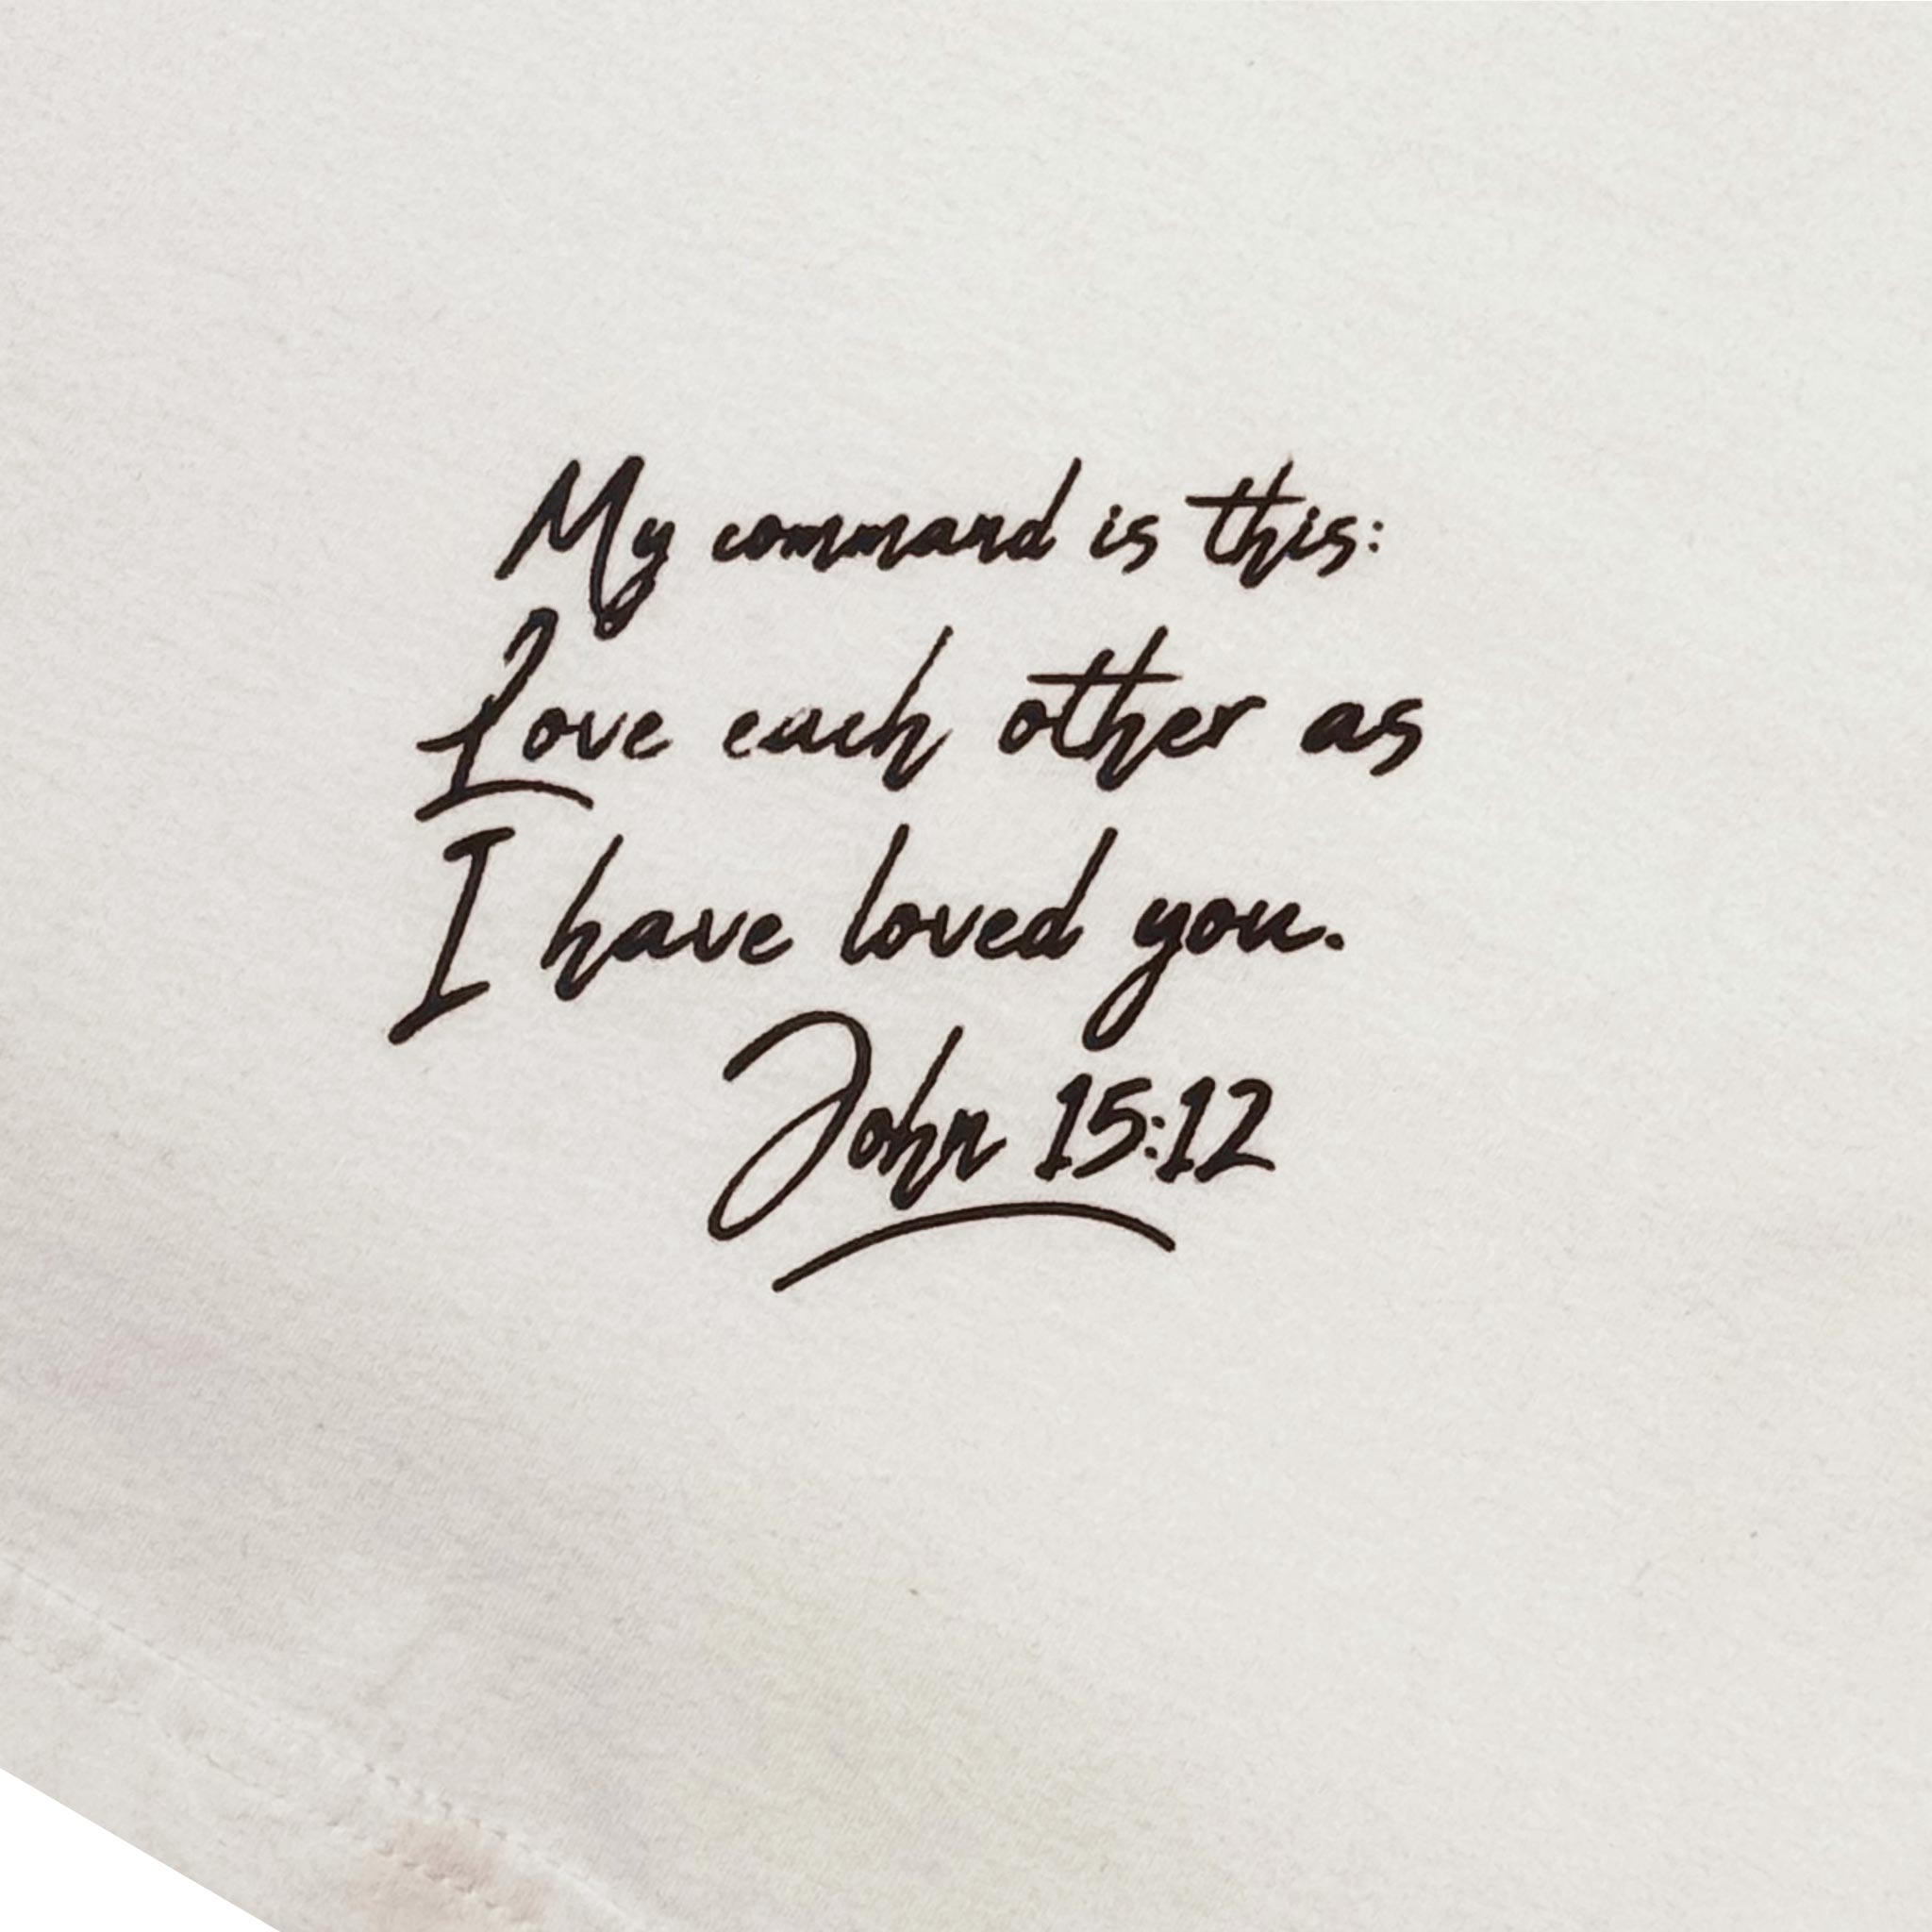 My command is this:
Love each other as
I have loved you.
John 15:12